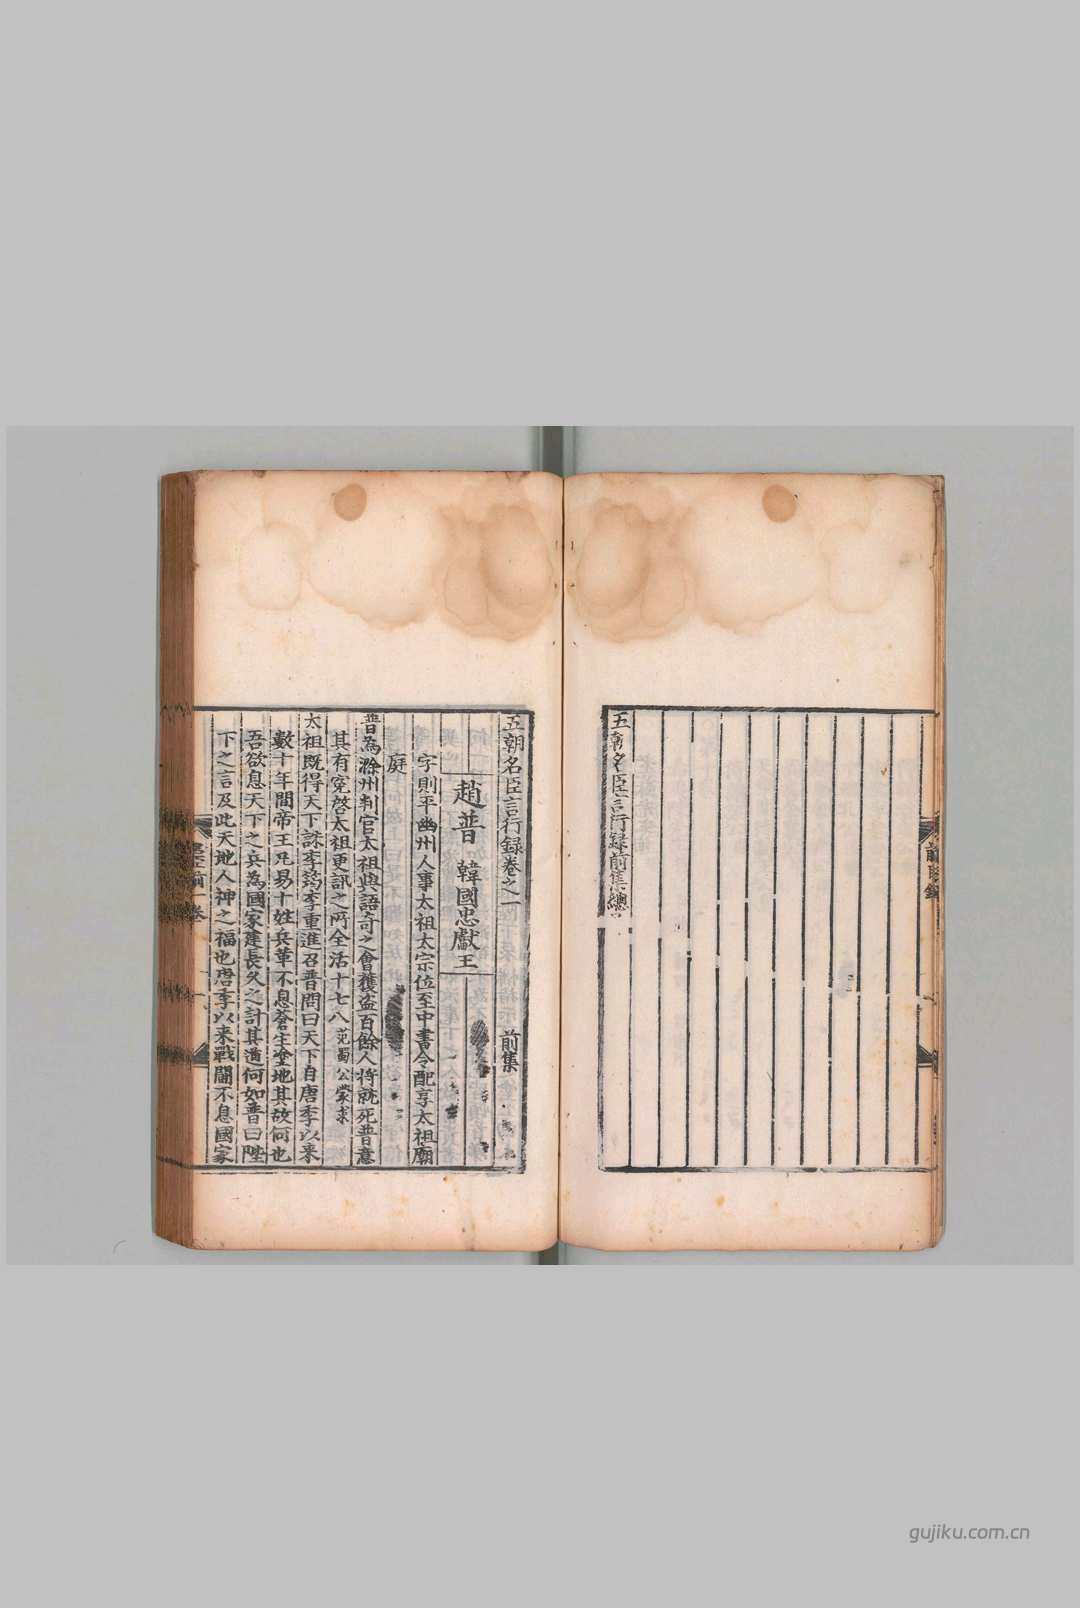 五朝名臣言行録前集總
五朝名臣言行録卷之一 前集
趙普 韓國忠獻王
字則平幽州人事太祖太宗位至中書令配享太祖廟
庭
普為滁州判官太祖與語奇之會獲盗百餘人將就死普意
其有寃啓太祖更訊之所全活十七八 范蜀公蒙求
太祖既得天下誅李筠李重進召普問曰天下自唐季以来
數十年間帝王凡易十姓兵革不息蒼生塗地其故何也
吾欲息天下之兵為國家建長久之計其道何如普曰陛
下之言及此天地人神之福也唐季以来戰鬪不息國家
gujiku.com.cn